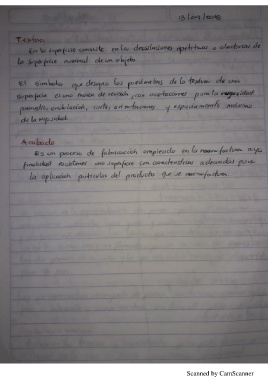 13/09/2018
Textura
En la superficie consiste en las desviaciones repetitivas o aleatorias de
la superficie nominal de un objeto.
El símbolo que designa los parámetros de la textura de una
superficie es una marca de revisión con acotaciones para la rugosidad
promedio, ondulación, corte, orientaciones y espaciamiento máximo
de la rugosidad.
Acabado
Es un proceso de fabricación empleado en la manufactura cuya
finalidad es obtener una superficie con características adecuadas para
la aplicación particular del producto que se manufactura.
Scanned by CamScanner